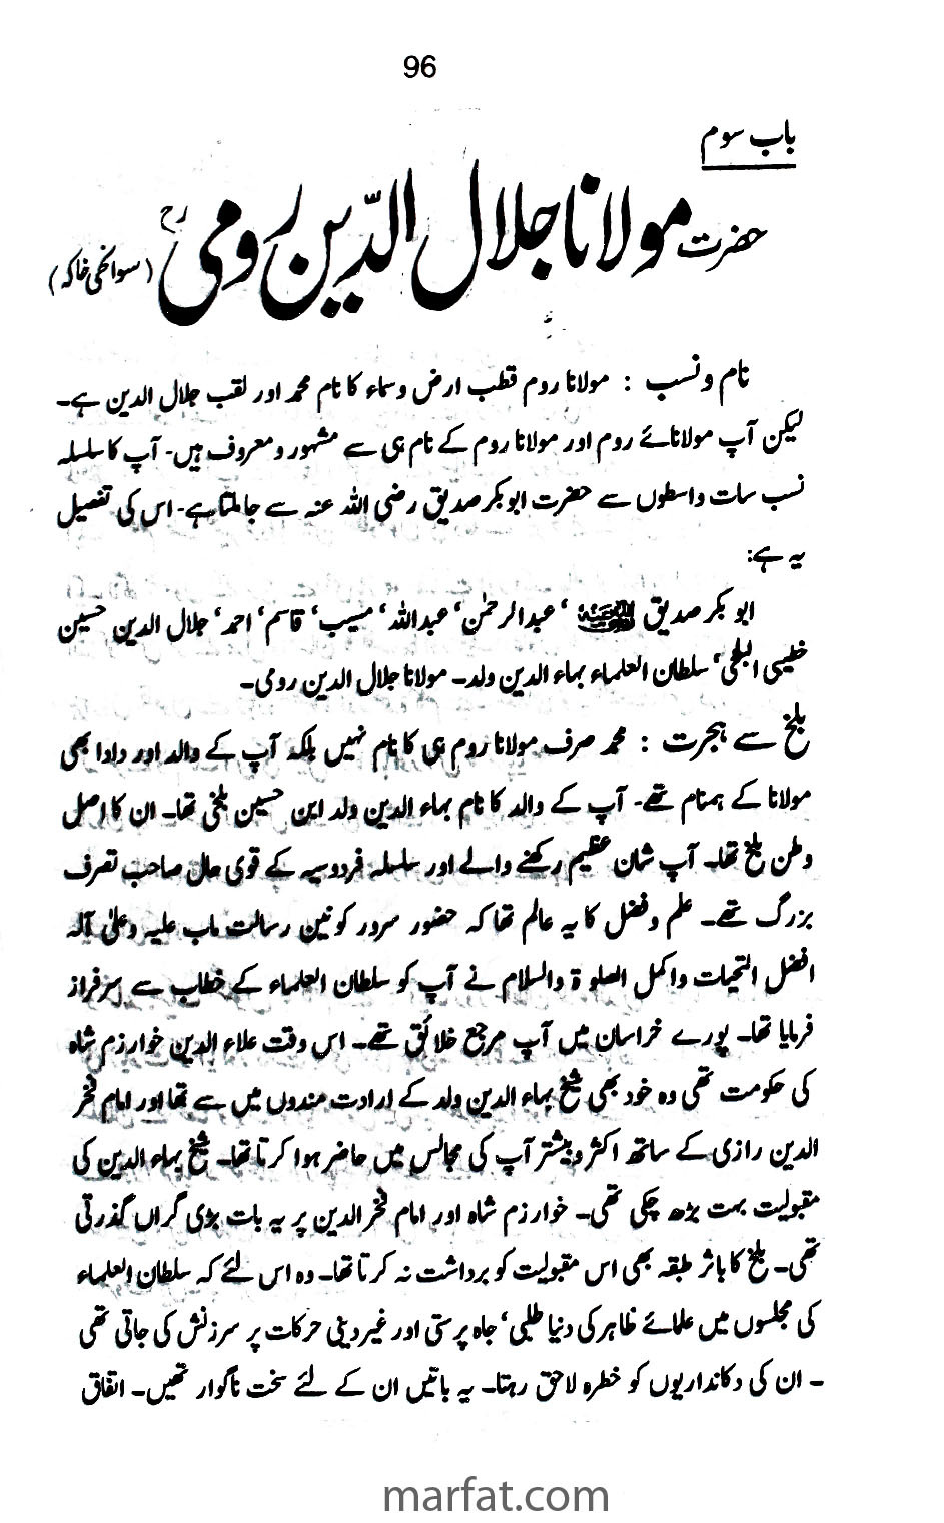 96
باب سوم
حضرت مولانا جلال الدّین رومی رح (سوانحی خاکہ)
نام و نسب : مولانا روم قطب ارض و سماء کا نام محمد اور لقب جلال الدین ہے۔
لیکن آپ مولانائے روم اور مولانا روم کے نام ہی سے مشہور و معروف ہیں۔ آپ کا سلسلہ
نسب سات واسطوں سے حضرت ابو بکر صدیق رضی اللہ عنہ سے جا ملتا ہے۔ اس کی تفصیل
یہ ہے:
ابو بکر صدیق ‘ عبدالرحمٰن‘ عبداللہ‘ مسیب‘ قاسم‘ احمد‘ جلال الدین حسین
خطیبی البلخی‘ سلطان العلماء بہاء الدین ولد۔ مولانا جلال الدین رومی۔
بلخ سے ہجرت : محمد صرف مولانا روم ہی کا نام نہیں بلکہ آپ کے والد اور دادا بھی
مولانا کے ہمنام تھے۔ آپ کے والد کا نام بہاء الدین ولد ابن حسین بلخی تھا۔ ان کا اصل
وطن بلخ تھا۔ آپ شان عظیم رکھنے والے اور سلسلہ فردوسیہ کے قوی حال صاحب تصرف
بزرگ تھے۔ علم و فضل کا یہ عالم تھا کہ حضور سرور کونین رسالت ماب علیہ وعلیٰ آلہ
افضل التحیات واکمل الصلوۃ والسلام نے آپ کو سلطان العلماء کے خطاب سے سرفراز
فرمایا تھا۔ پورے خراسان میں آپ مرجع خلائق تھے۔ اس وقت علاء الدین خوارزم شاہ
کی حکومت تھی وہ خود بھی شیخ بہاء الدین ولد کے ارادت مندوں میں سے تھا اور امام فخر
الدین رازی کے ساتھ اکثر و بیشتر آپ کی مجالس میں حاضر ہوا کرتا تھا۔ شیخ بہاء الدین کی
مقبولیت بہت بڑھ چکی تھی۔ خوارزم شاہ اور امام فخر الدین پر یہ بات بڑی گراں گذرتی
تھی۔ بلخ کا باثر طبقہ بھی اس مقبولیت کو برداشت نہ کرتا تھا۔ وہ اس لئے کہ سلطان العلماء
کی مجلسوں میں علمائے ظاہر کی دنیا طلبی‘ جاہ پرستی اور غیر دینی حرکات پر سرزنش کی جاتی تھی
۔ ان کی دکانداریوں کو خطرہ لاحق رہتا۔ یہ باتیں ان کے لئے سخت ناگوار تھیں۔ اتفاق
marfat.com